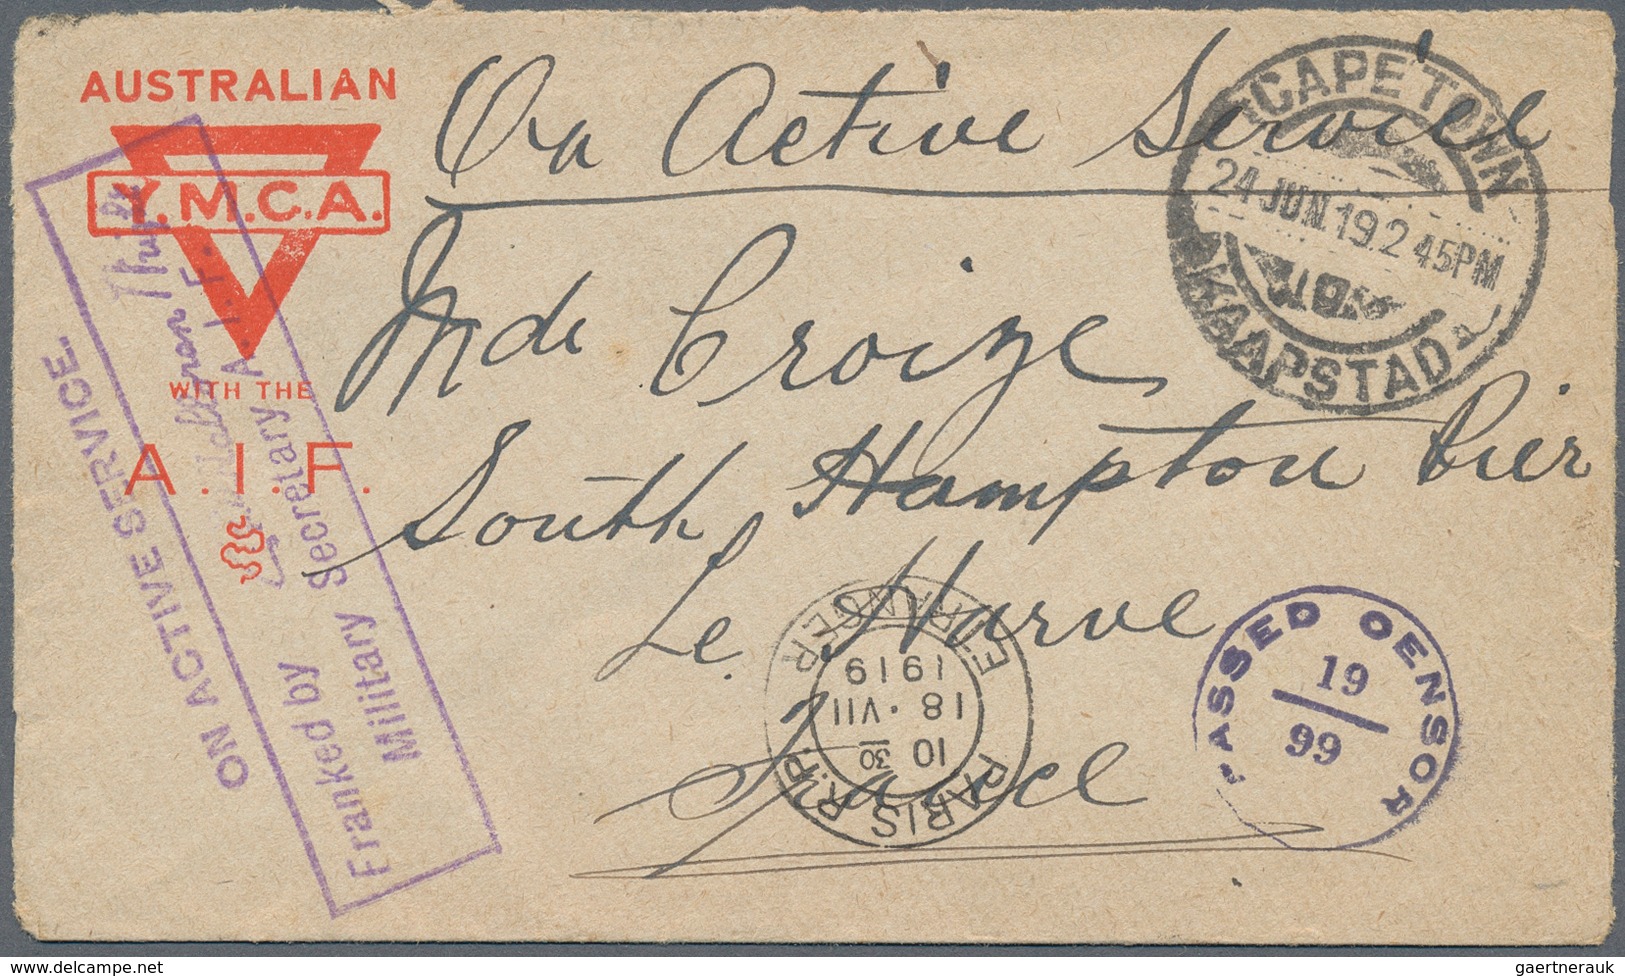 AUSTRALIAN
Y.M.C.A.
WITH THE
A.I.F.
On Active Service
Mde Croize
South Hampton Pier
Le Harve
France
CAPE TOWN
24 JUN.19.2 45PM
KAAPSTAD
ON ACTIVE SERVICE.
Franked by
Military Secretary A.I.F.
PARIS R.P.
10 30
18 · VII
1919
ETRANGER
PASSED CENSOR
19
99
delcampe.net
gaertnerauk